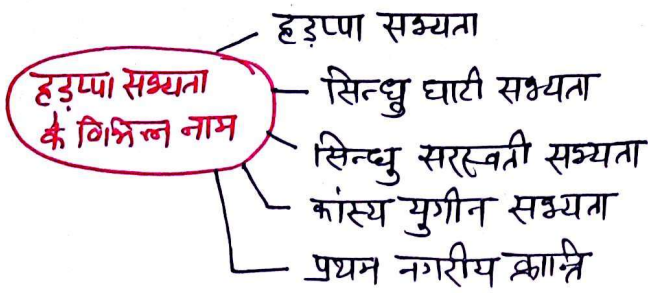 हड़प्पा सभ्यता
के विभिन्न नाम
हड़प्पा सभ्यता
सिन्धु घाटी सभ्यता
सिन्धु सरस्वती सभ्यता
कांस्य युगीन सभ्यता
प्रथम नगरीय क्रान्ति